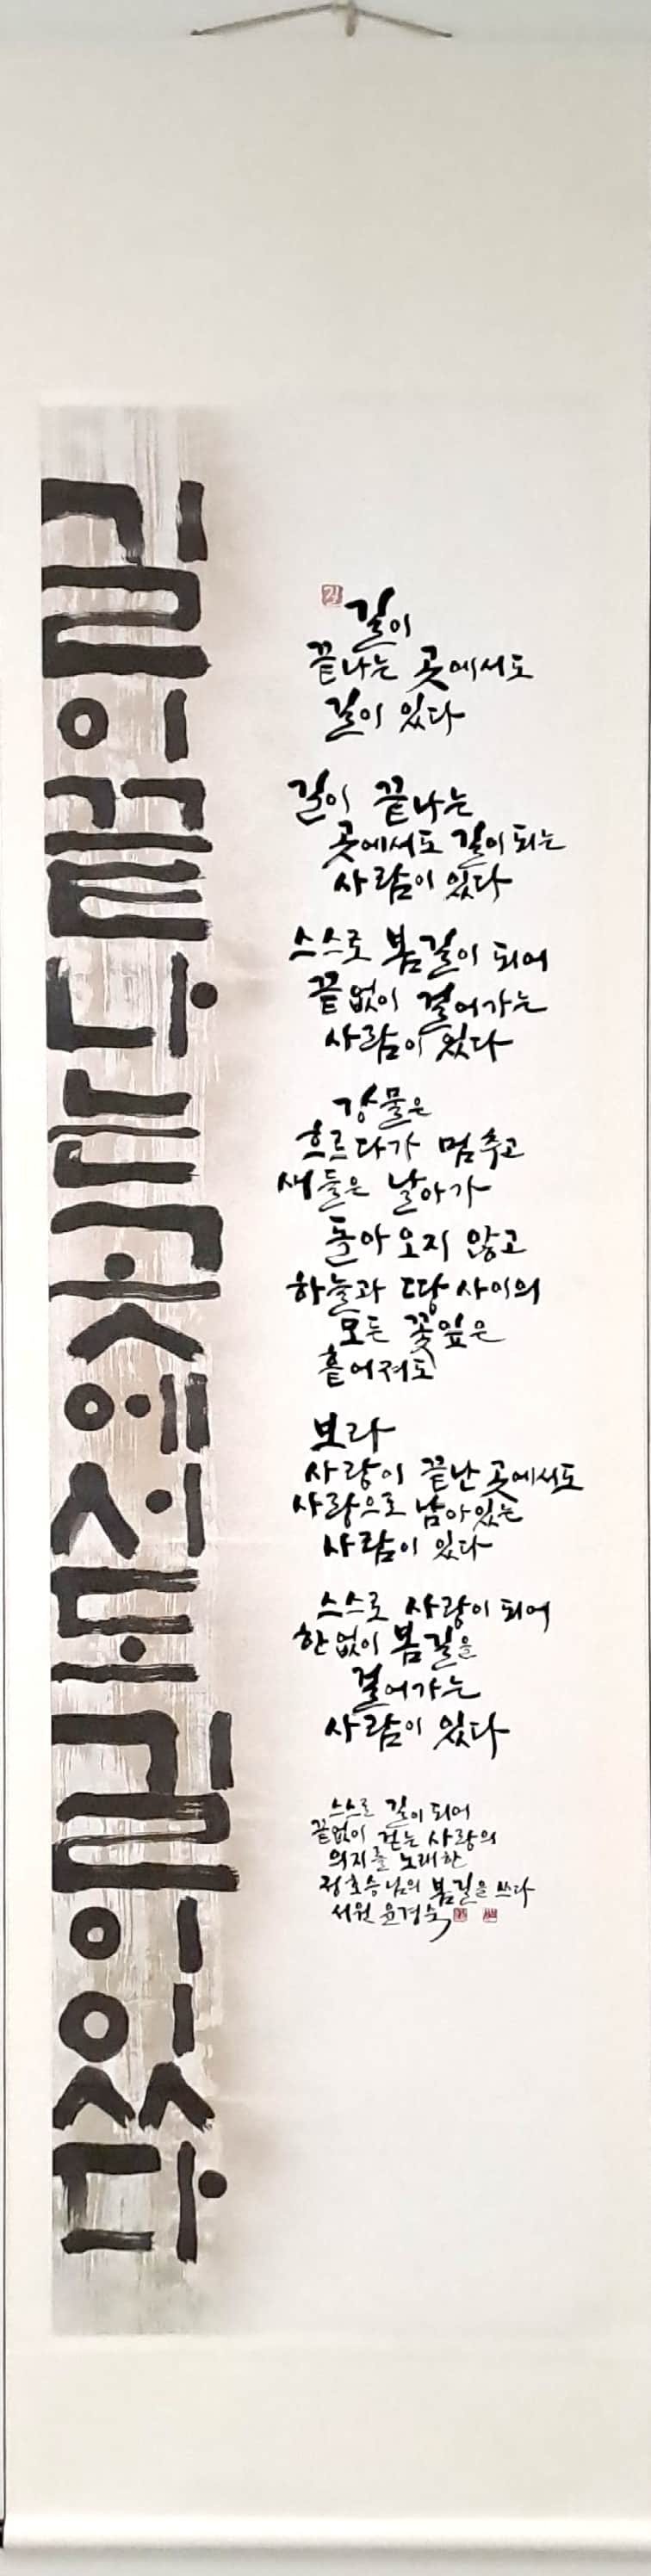 길이끝나는곳에서도길이있다
길이
끝나는 곳에서도
길이 있다
길이 끝나는
곳에서도 길이 되는
사람이 있다
스스로 봄길이 되어
끝없이 걸어가는
사람이 있다
강물은
흐르다가 멈추고
새들은 날아가
돌아오지 않고
하늘과 땅 사이의
모든 꽃잎은
흩어져도
보라
사랑이 끝난 곳에서도
사랑으로 남아있는
사람이 있다
스스로 사랑이 되어
한없이 봄길을
걸어가는
사람이 있다
스스로 길이 되어
끝없이 걷는 사랑의
의지를 노래한
정호승님의 봄길을 쓰다
서원 윤경숙